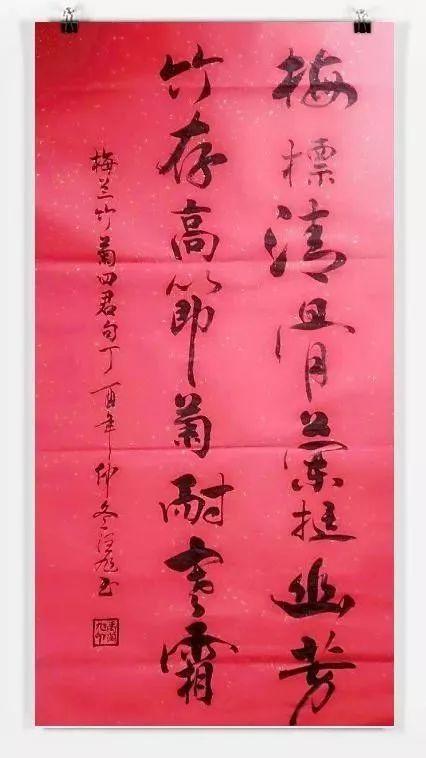 梅標清骨蘭挺幽芳
竹存高節菊耐寒霜
梅兰竹菊四君句丁酉年仲冬汪旭书